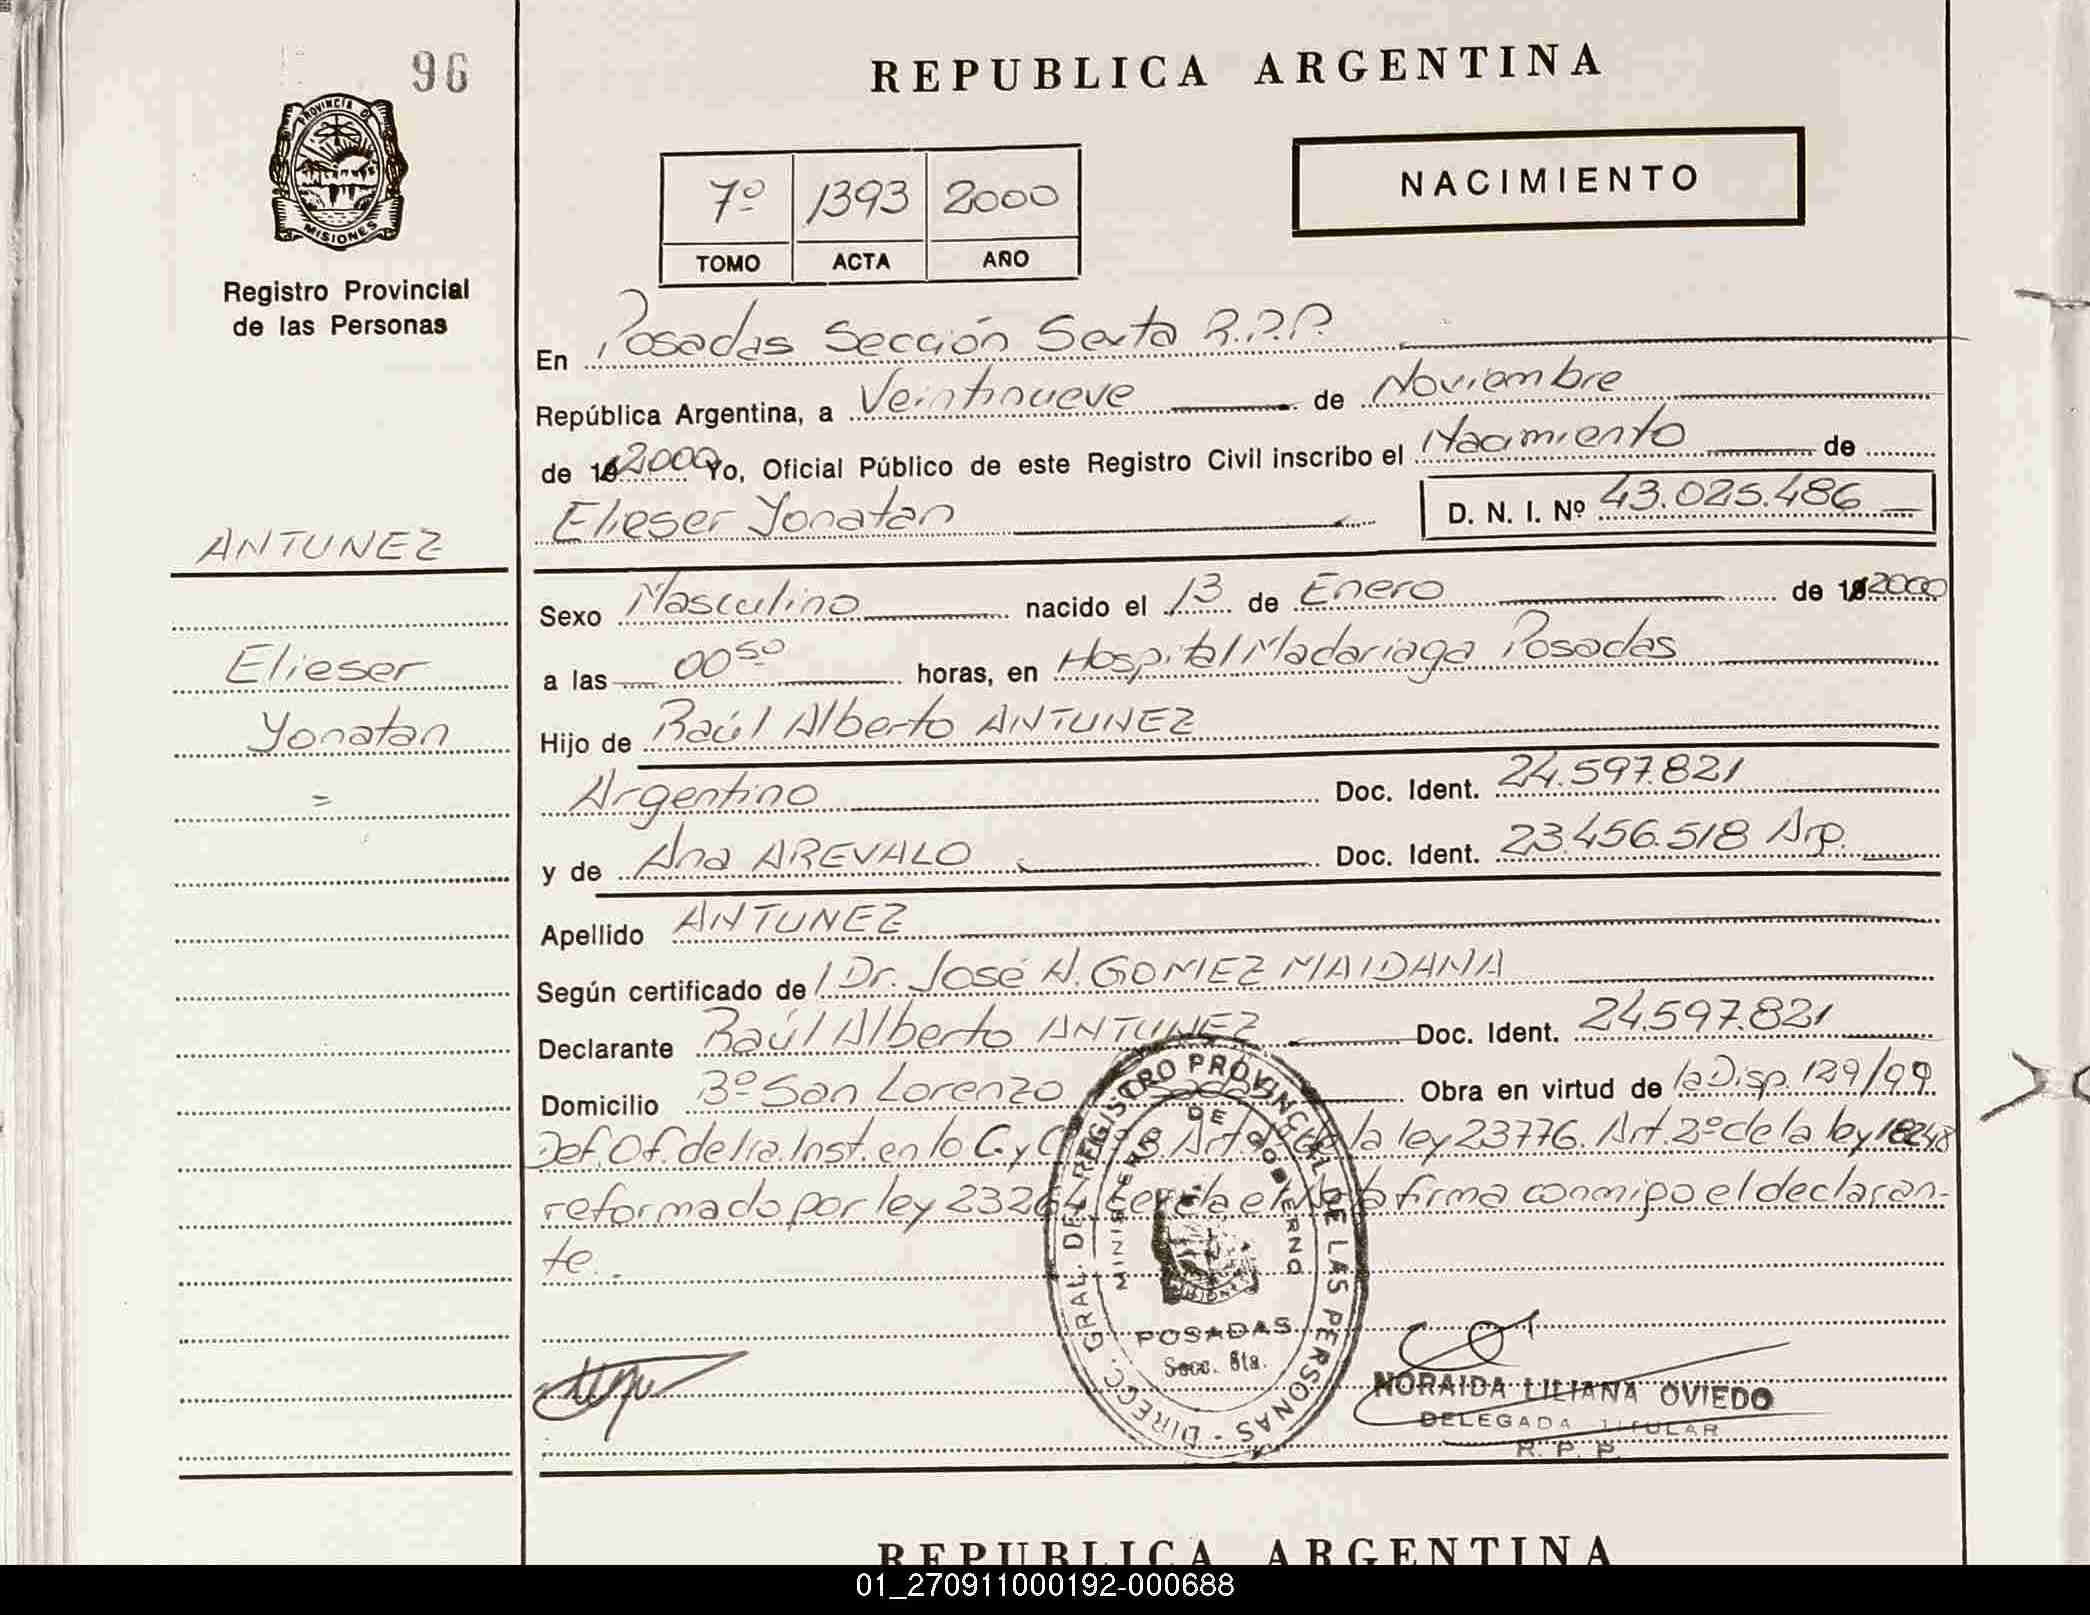 96
REPUBLICA ARGENTINA
PROVINCIA DE
MISIONES
Registro Provincial
de las Personas
NACIMIENTO
7º 1393 2000
TOMO ACTA AÑO
En Posadas Sección Sexta R.P.P.
República Argentina, a Veintinueve de Noviembre
de 2000 Yo, Oficial Público de este Registro Civil inscribo el Nacimiento de
Elieser Yonatan D. N. I. Nº 43.025.486
ANTUNEZ
Elieser
Yonatan
=
Sexo Masculino nacido el 13 de Enero de 2000
a las 00 50 horas, en Hospital Madariaga Posadas
Hijo de Raúl Alberto ANTUNEZ
Argentino Doc. Ident. 24.597.821
y de Ana AREVALO Doc. Ident. 23.456.518 Arg.
Apellido ANTUNEZ
Según certificado de Dr. José A. GOMEZ MAIDANA
Declarante Raúl Alberto ANTUNEZ Doc. Ident. 24.597.821
Domicilio 3º San Lorenzo Obra en virtud de la Disp. 129/99
Def. Of. de 1ra. Inst. en lo C. y C. la ley 23776. Art. 2º de la ley 18248
reformado por ley 23264 firma conmigo el declaran-
te.
DIRECC. GRAL. DEL REGISTRO PROVINCIAL DE LAS PERSONAS
MINISTERIO DE GOBIERNO
POSADAS
Secc. 6ta.
NORAIDA LILIANA OVIEDO
DELEGADA TITULAR
R. P. P.
REPUBLICA ARGENTINA
01_270911000192-000688